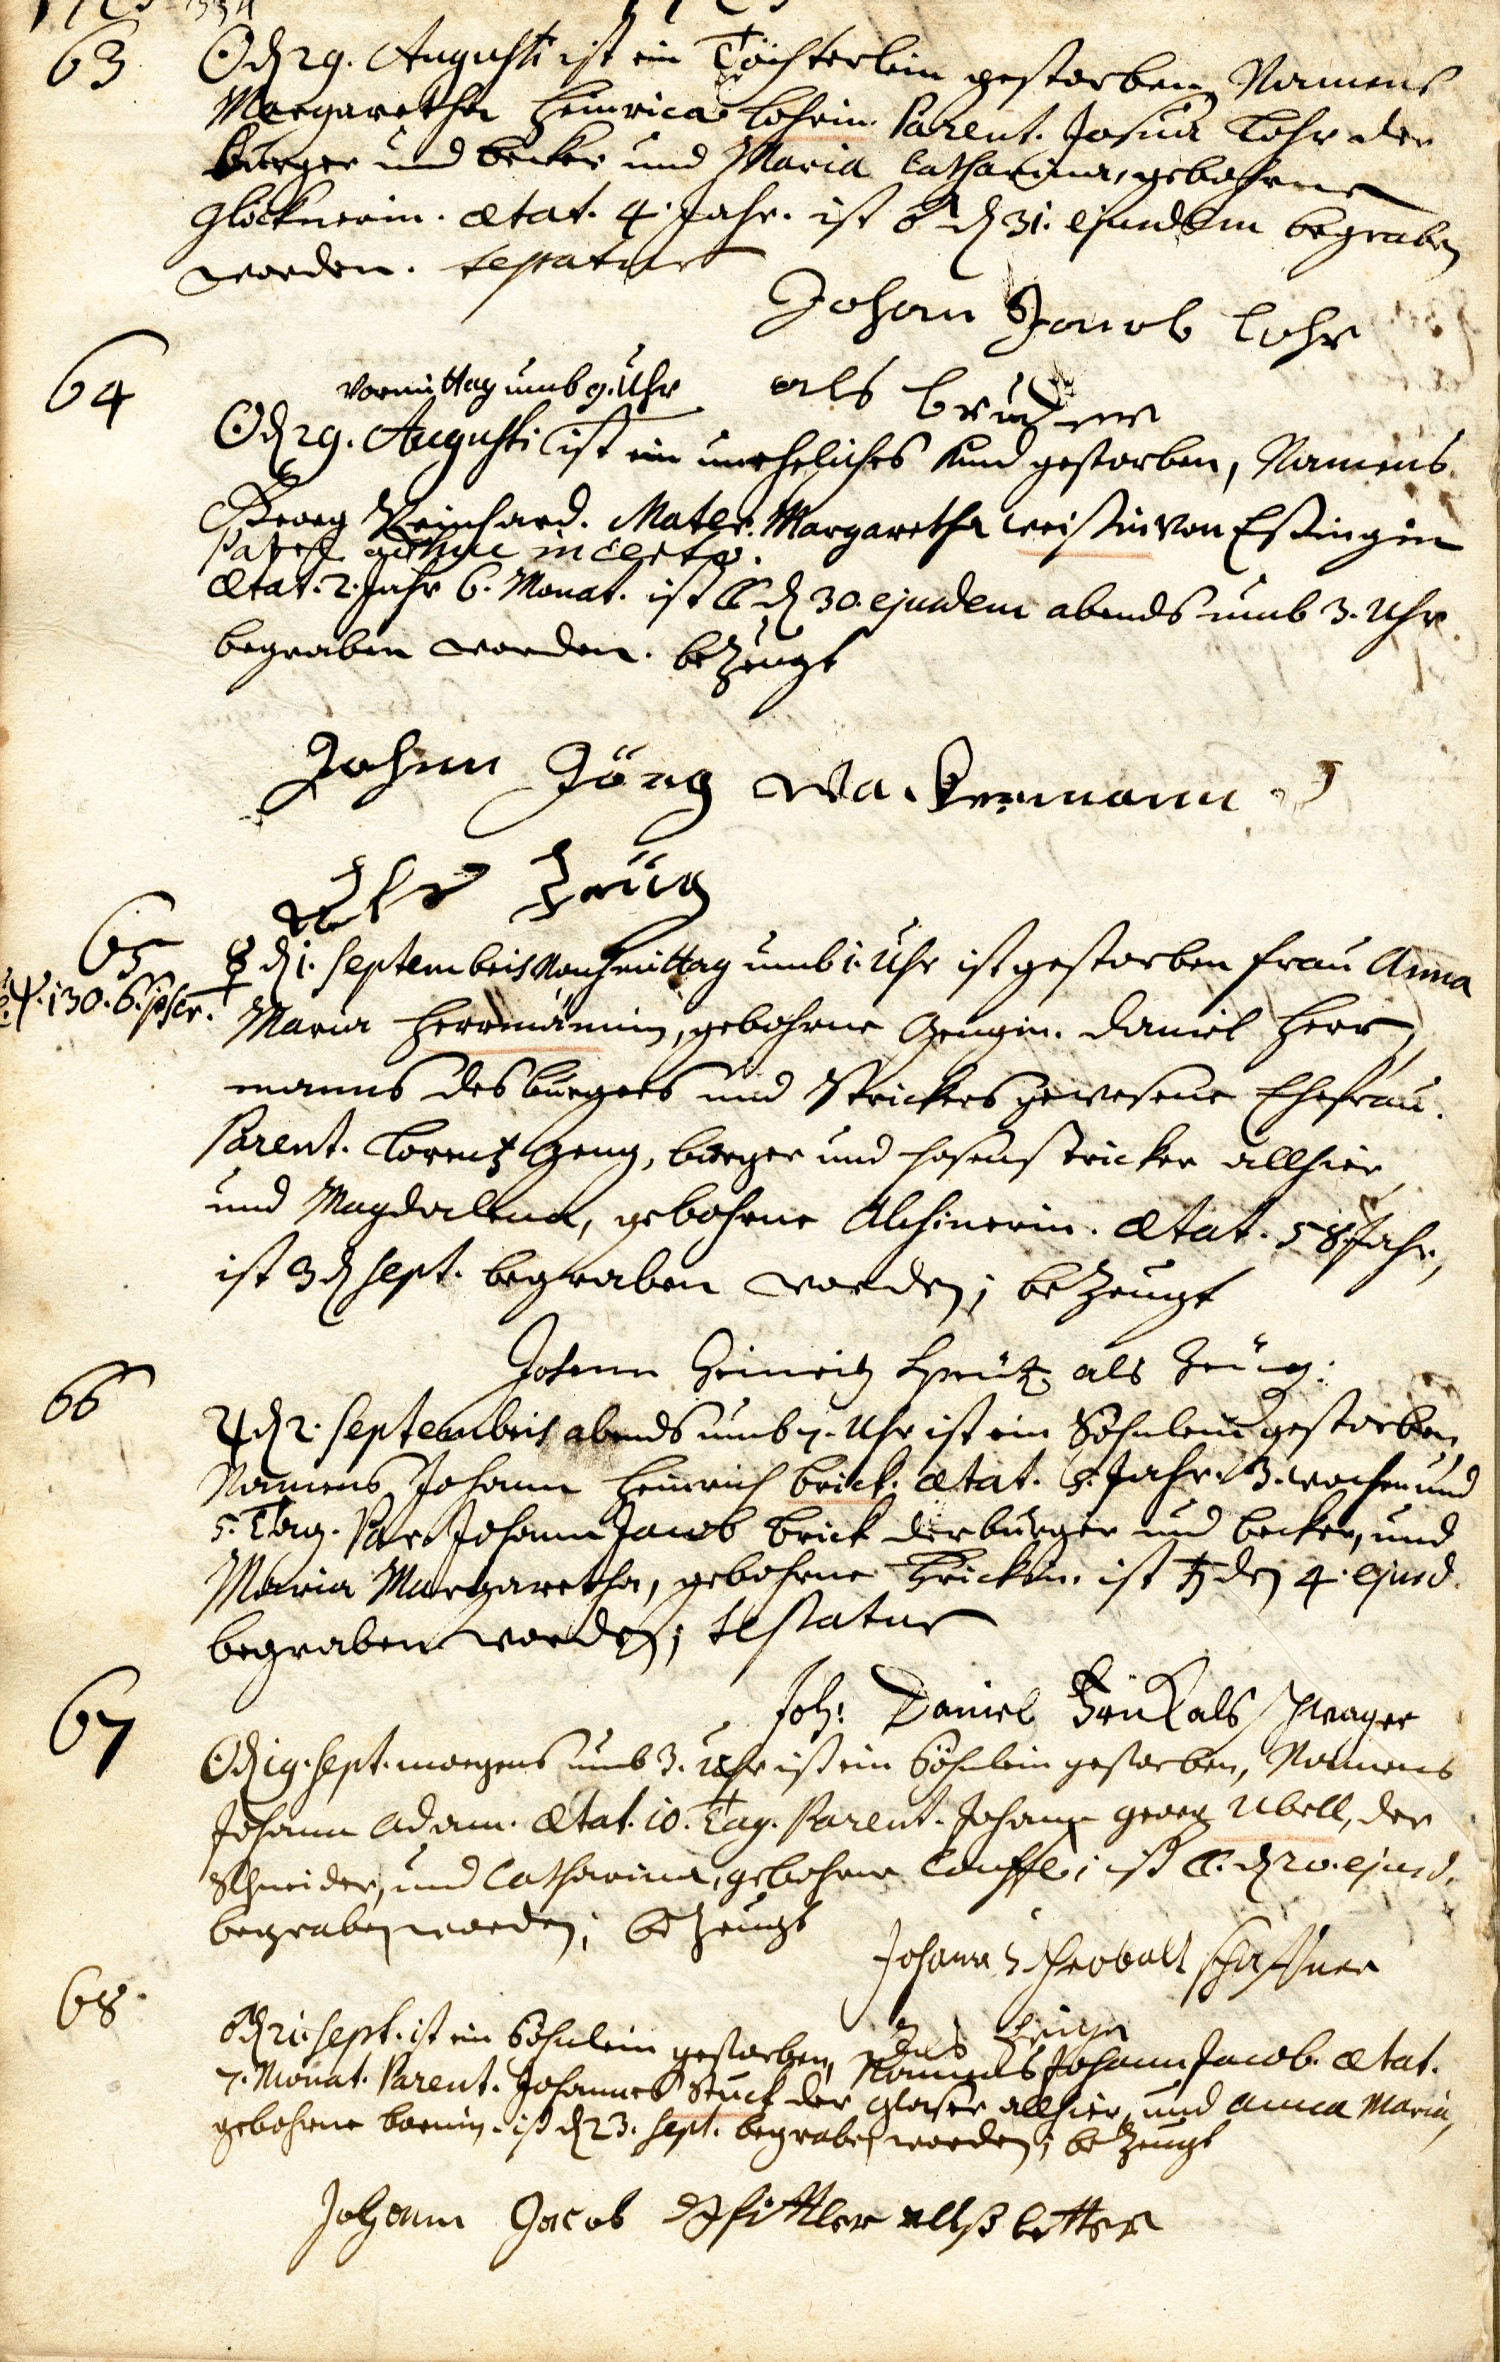 63
☉ d 29. Augusti ist ein Töchterlein gestorben, Namens
Margaretha Heinrica Lohrin. Parent. Josua Lohr der
Burger und Becker und Maria Catharina, gebohrne
Glöcknerin. Ætat. 4. Jahr. ist ♂ d 31. ejusdem begraben
worden. testatur
Johan Jacob Lohr
als bruder
64
Vormittag umb 9. Uhr
☉ d 29. Augusti ist ein uneheliches Kind gestorben, Namens
Georg Reinhard. Mater. Margaretha Weissin von Essingen
Pater adhuc incerto.
Ætat. 2. Jahr 6. Monat. ist ☾ d 30. ejusdem abends umb 3. Uhr
begraben worden. bezeugt
Johan Jörg Wackermann
Als Zeüg
65
☿ d 1. Septembris Nachmittag umb 1. Uhr ist gestorben Frau Anna
Ps. 130. 6. pscr.
Maria Herrmännin, gebohrne Gengin. Daniel Herr
manns des Burgers und Strickers gewesene Ehefrau.
Parent. Lorentz Geng, burger und hosenstricker allhier
und Magdalena, gebohrne Alchinerin. Ætat. 58 Jahr,
ist 3 d Sept. begraben worden; bezeugt
Johann Heinrich als Zeüg.
66
♃ d 2. Septembris abends umb 7. Uhr ist ein Söhnlein gestorben,
Namens Johann Heinrich Brick. Ætat. 8. Jahr. 3. wochen und
5. Tag. Par. Johann Jacob Brick der burger und becker, und
Maria Margaretha, gebohrne ist ♄ den 4. ejusd.
begraben worden; testatur
Joh: Daniel Brück als schwager
67
☉ d 19. Sept. morgens umb 3. Uhr ist ein Söhnlein gestorben, Namens
Johann Adam. Ætat. 10. Tag. Parent. Johann Georg Ubell, der
Schneider, und Catharina, gebohrne ist ☾ d 20. ejusd.
begraben worden; bezeugt
Johann Theobalt Schaffner
als Zeuge
68.
♂ d 21. Sept. ist ein Söhnlein gestorben, Namens Johann Jacob. Ætat.
7. Monat. Parent. Johannes Stuck der glaser allhier, und Anna Maria,
gebohrne ist d 23. Sept. begraben worden; bezeugt
Johann Jacob Pfittler allß Vetter